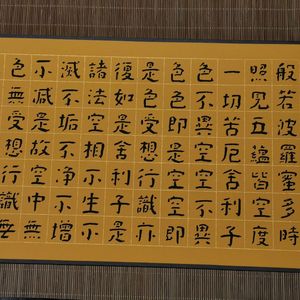 般若波羅蜜多時
照見五蘊皆空度
一切苦厄舍利子
色不異空空不異
色色即是空空即
是色受想行識亦
復如是舍利子是
諸法空相不生不
滅不垢不淨不增
不減是故空中無
色無受想行識無